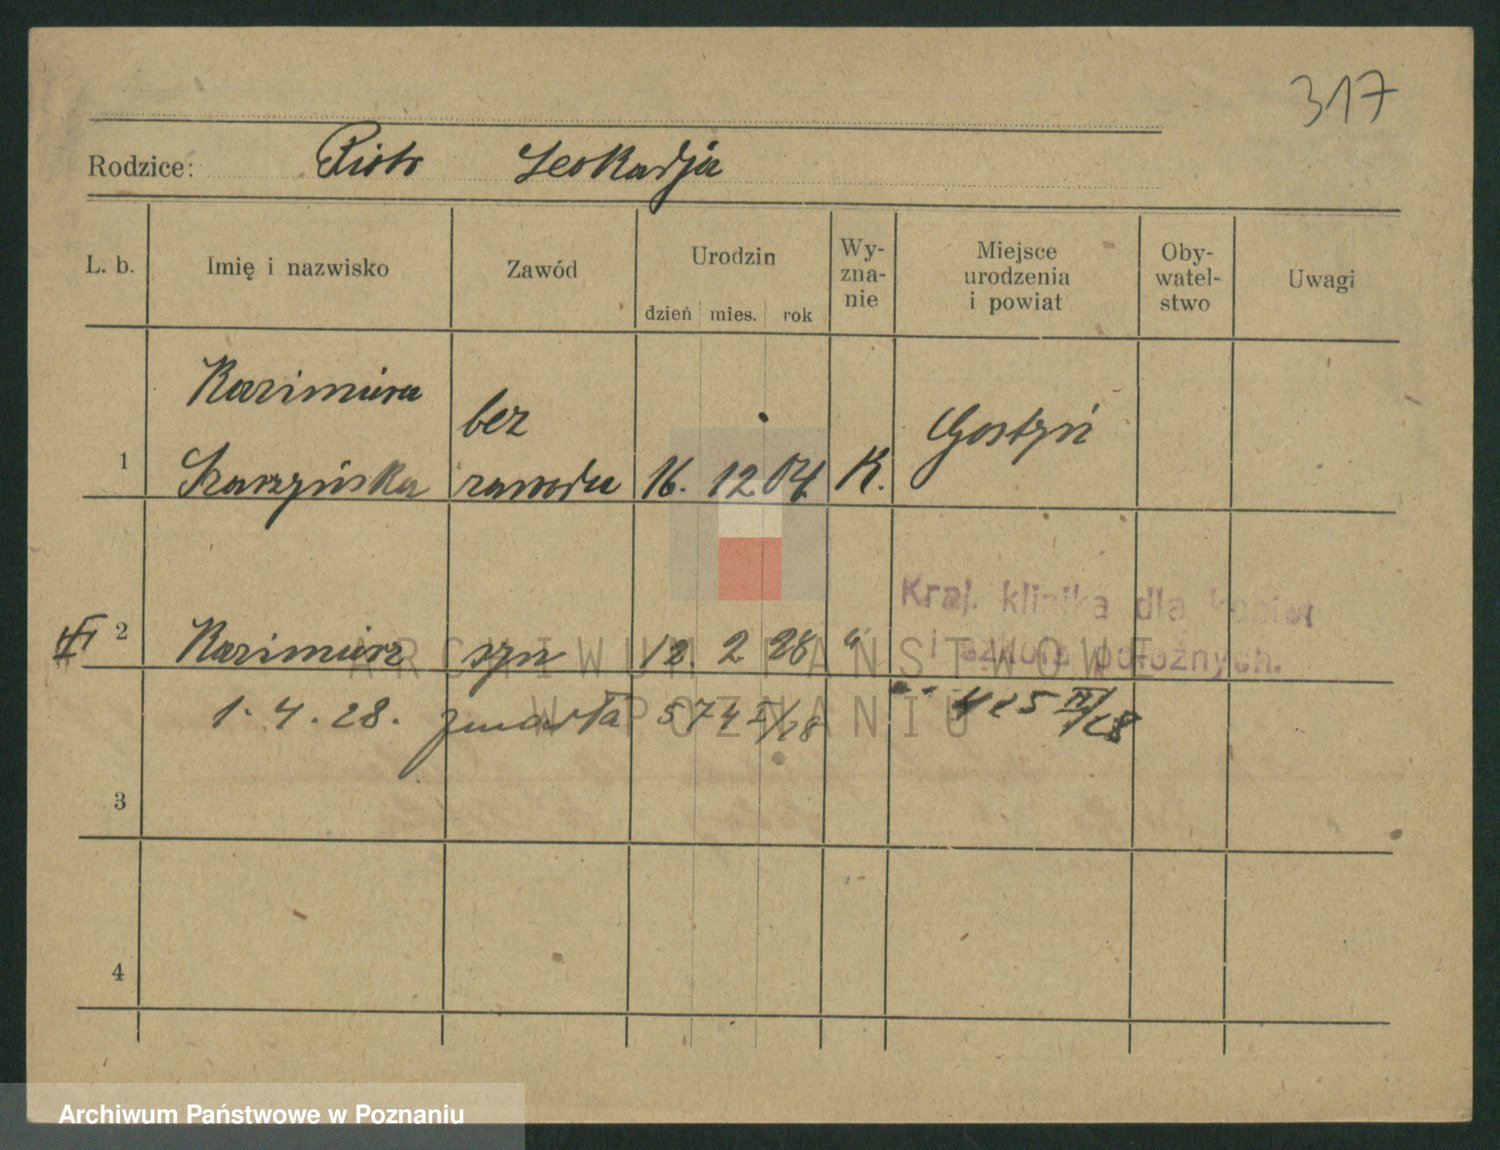 317
Rodzice: Piotr Leokadja
L. b. Imię i nazwisko Zawód Urodzin dzień mies. rok Wy-zna-nie Miejsce urodzenia i powiat Oby-watel-stwo Uwagi
Kazimiera
bez
Gostyń
1 zawodu 16. 12 04 K.
Kraj. klinika dla kobiet
2 Kazimierz syn 12. 2 28 "
i szkoła położnych.
1. 4. 28. zmarła 574 I/28
3
4
ARCHIWUM PAŃSTWOWE
W POZNANIU
Archiwum Państwowe w Poznaniu